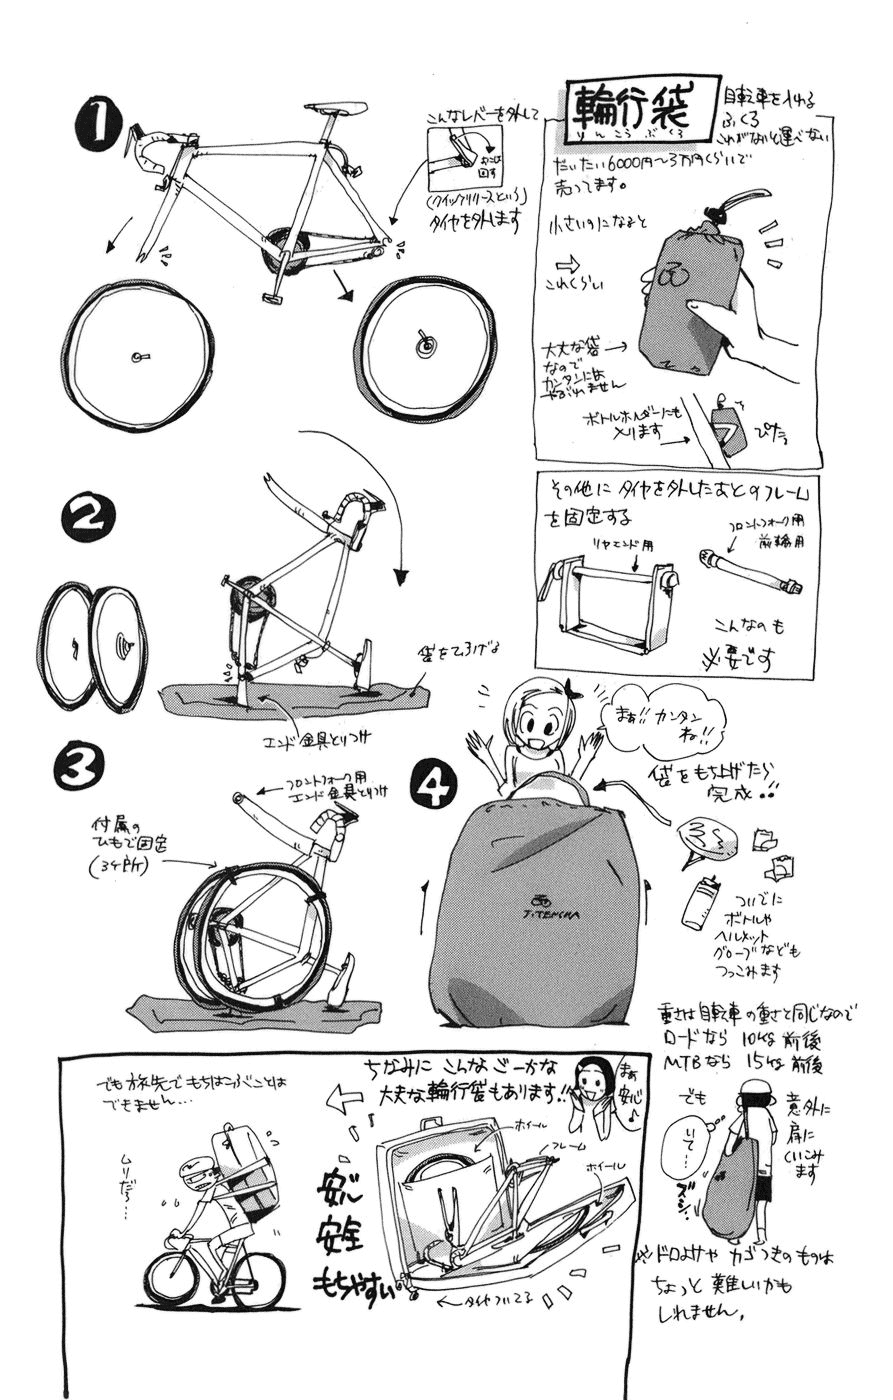 輪行袋
りんこうぶくろ
自転車を入れる
ふくろ
これがないと運べない
だいたい6000円〜3万円くらいで
売ってます。
小さいのになると
これくらい
大丈な袋
なので
カンタンには
やぶれません
ボトルホルダーにも
入ります
ぴたっ
1
こんなレバーを外して
(クイックリリースという)
タイヤを外します
その他に タイヤを外したあとのフレーム
を固定する
リヤエンド用
フロントフォーク用
前輪用
こんなのも
必要です
2
袋をひろげる
エンド金具とりつけ
3
フロントフォーク用
エンド金具とりつけ
付属の
ひもで固定
(3ヶ所)
4
まぁ!!カンタン
ね!!
袋をもち上げたら
完成!!
J:TENCHA
ついでに
ボトルや
ヘルメット
グローブなども
つっこみます
重さは自転車の重さと同じなので
ロードなら 10kg 前後
MTBなら 15kg 前後
でも
意外に
肩に
くいこみ
ます
いて…
ズシ
※ドロよけや カゴつきのものは
ちょっと 難しいかも
しれません。
ちなみに こんな ごーかな
大丈な輪行袋もあります!!
まぁ
安心♪
ホイール
フレーム
ホイール
安心
安全
もちやすい
タイヤついてる
でも 旅先で もちはこぶことは
できません…
ムリだろ…